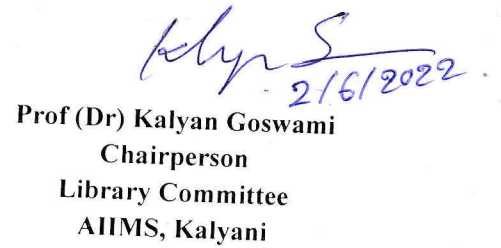 2/6/2022.
Prof (Dr) Kalyan Goswami
Chairperson
Library Committee
AIIMS, Kalyani